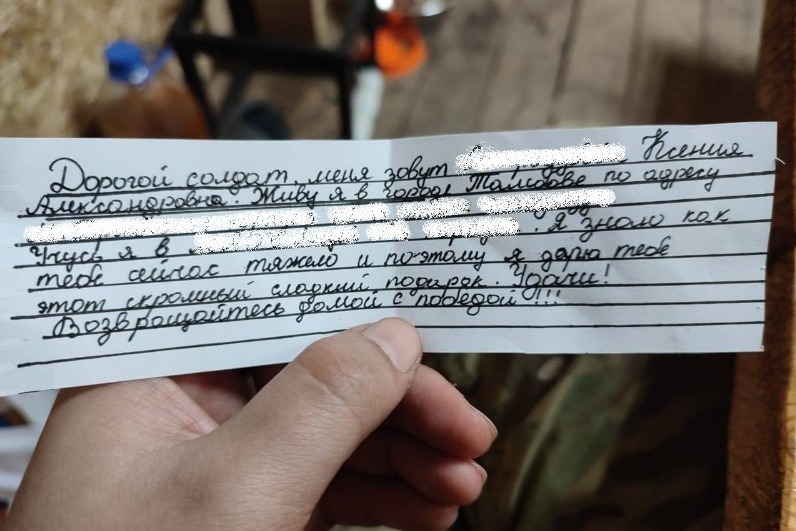 Дорогой солдат, меня зовут Ксения
Александровна. Живу я в городе Тамбове по адресу
Учусь я в . Я знаю как
тебе сейчас тяжело и поэтому я дарю тебе
этот скромный сладкий подарок. Удачи!
Возвращайтесь домой с победой!!!